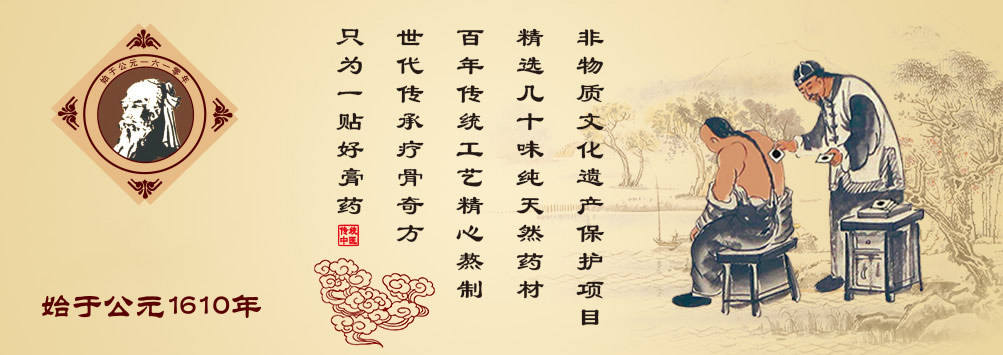 始于公元一六一零年
始于公元1610年
非物质文化遗产保护项目
精选几十味纯天然药材
百年传统工艺精心熬制
世代传承疗骨奇方
只为一贴好膏药
传统
中医